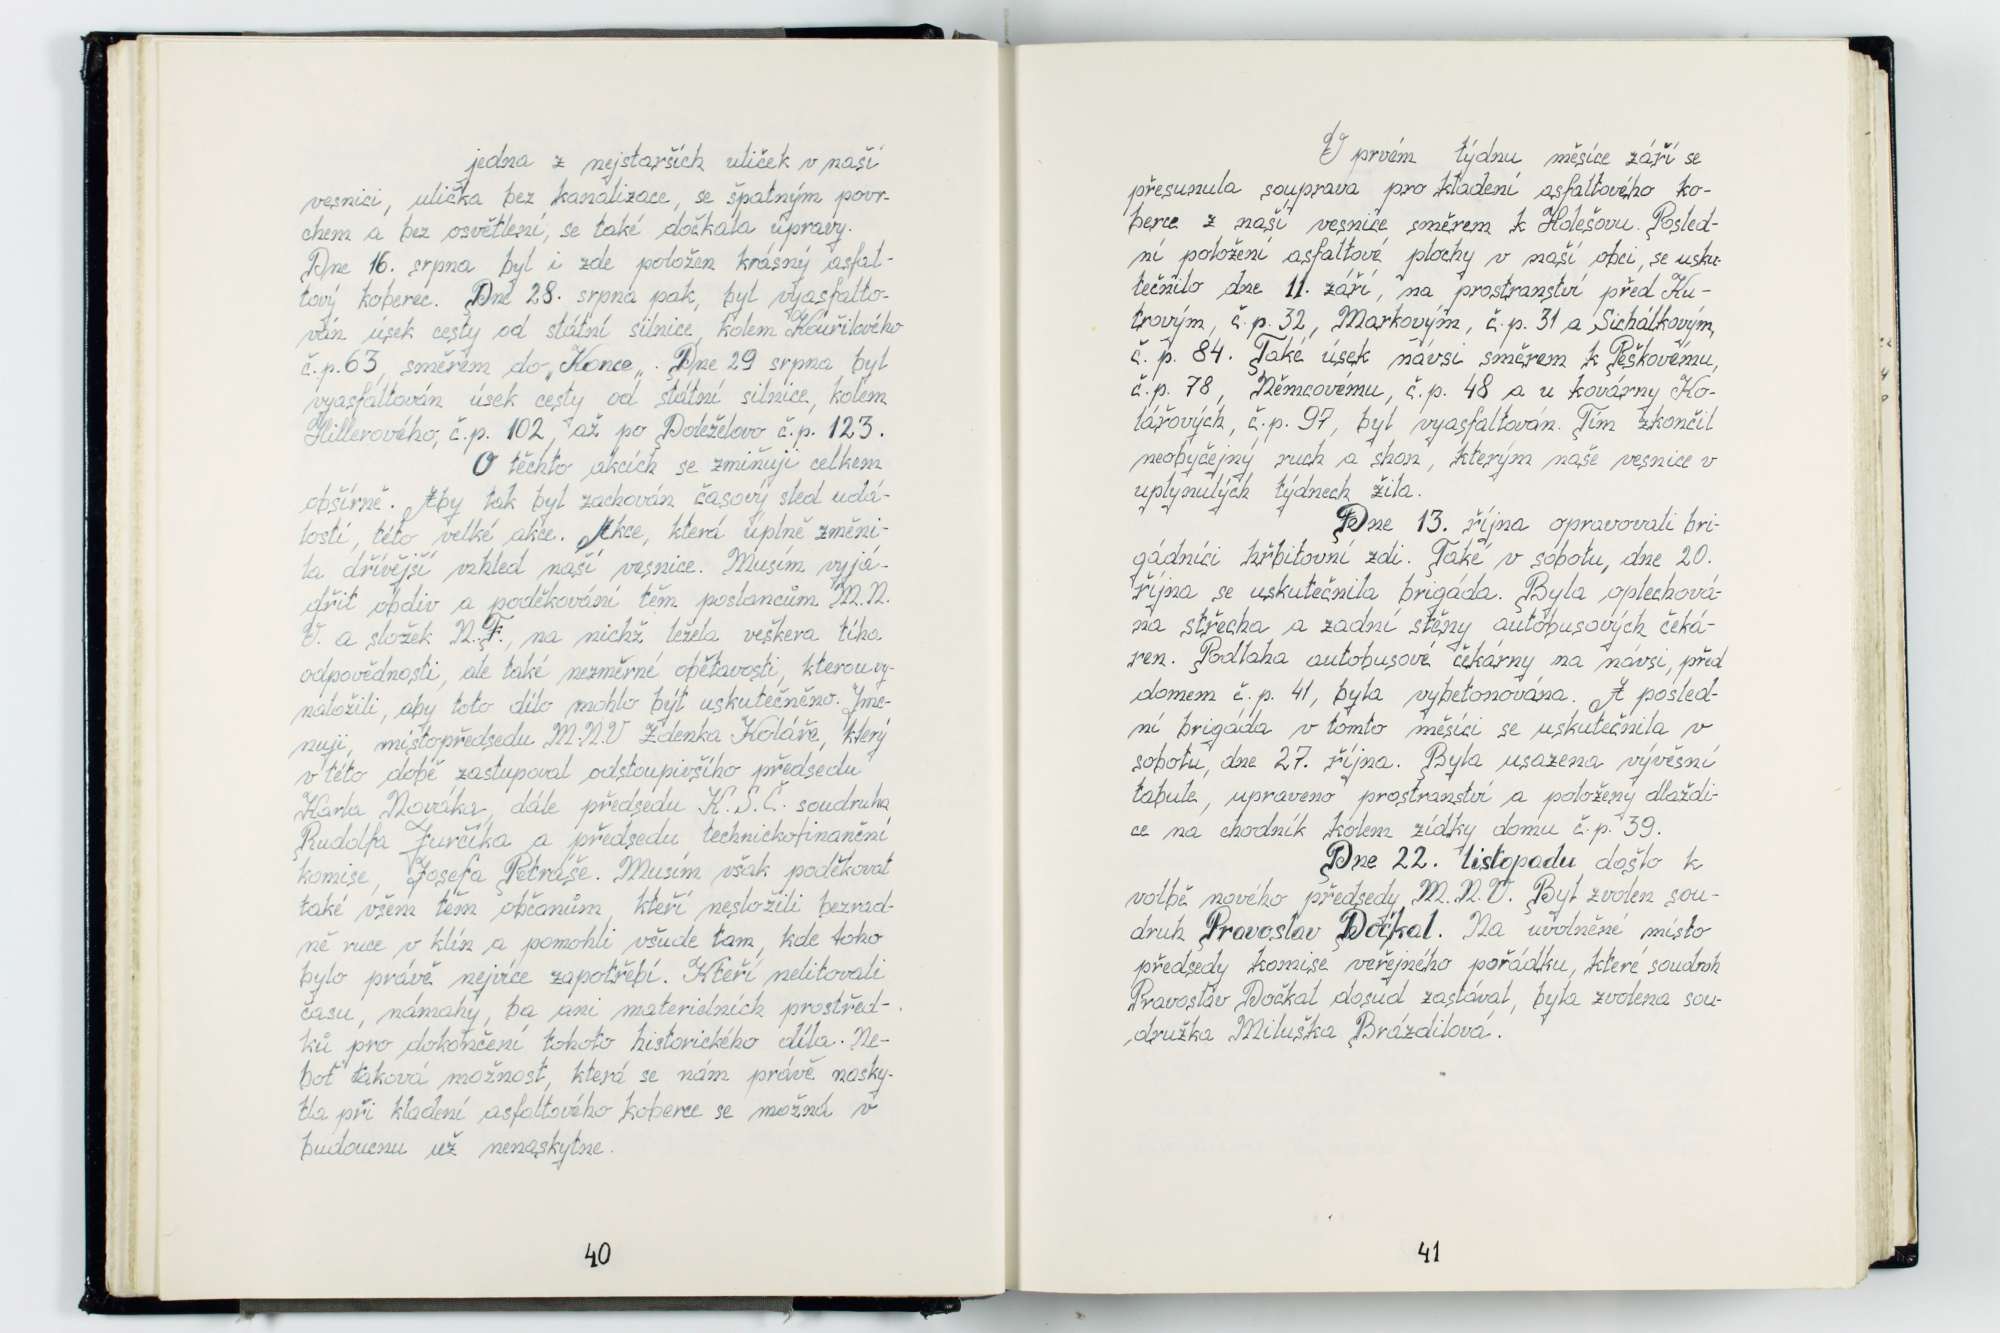 jedna z nejstarších uliček v naší
vesnici, ulička bez kanalizace, se špatným povr-
chem a bez osvětlení, se také dočkala úpravy.
Dne 16. srpna byl i zde položen krásný asfal-
tový koberec. Dne 28. srpna pak, byl vyasfalto-
ván úsek cesty od státní silnice, kolem Kouřilového
č.p. 63, směrem do „Konce„. Dne 29 srpna byl
vyasfaltován úsek cesty od státní silnice, kolem
Hillerového, č.p. 102, až po Doleželovo č.p. 123.
O těchto akcích se zmiňuji celkem
obšírně. Aby tak byl zachován časový sled udá-
lostí, této velké akce. Akce, která úplně změni-
la dřívější vzhled naší vesnice. Musím vyjá-
dřit obdiv a poděkování těm poslancům M.N.
V. a složek N.F., na nichž ležela veškera tíha
odpovědnosti, ale také nezměrné obětavosti, kterou vy-
naložili, aby toto dílo mohlo být uskutečněno. Jme-
nuji, místopředsedu M.N.V Zdenka Koláře, který
v této době zastupoval odstoupivšího předsedu
Karla Nováka, dále předsedu K.S.Č. soudruha
Rudolfa Jurčíka a předsedu technickofinanční
komise, Josefa Petráše. Musím však poděkovat
také všem těm občanům, kteří nesložili bezrad-
ně ruce v klín a pomohli všude tam, kde toho
bylo právě nejvíce zapotřebí. Kteří nelitovali
času, námahy, ba ani materielních prostřed-
ků pro dokončení tohoto historického díla. Ne-
boť taková možnost, která se nám právě nasky-
tla při kladení asfaltového koberce se možná v
budoucnu už nenaskytne.
40
V prvém týdnu měsíce září se
přesunula souprava pro kladení asfaltového ko-
berce z naší vesnice směrem k Holešovu. Posled-
ní položení asfaltové plochy v naší obci, se usku-
tečnilo dne 11. září, na prostranství před Ku-
trovým, č.p. 32, Markovým, č.p. 31 a Sichálkovým,
č.p. 84. Také úsek návsi směrem k Peškovému,
č.p. 78, Němcovému, č.p. 48 a u kovárny Ko-
lářových, č.p. 97, byl vyasfaltován. Tím zkončil
neobyčejný ruch a shon, kterým naše vesnice v
uplynulých týdnech žila.
Dne 13. října opravovali bri-
gádníci hřbitovní zdi. Také v sobotu, dne 20.
října se uskutečnila brigáda. Byla oplechová-
na střecha a zadní stěny autobusových čeká-
ren. Podlaha autobusové čekárny na návsi, před
domem č.p. 41, byla vybetonována. A posled-
ní brigáda v tomto měsíci se uskutečnila v
sobotu, dne 27. října. Byla usazena vývěsní
tabule, upraveno prostranství a položeny dlaždi-
ce na chodník kolem zídky domu č.p. 39.
Dne 22. listopadu došlo k
volbě nového předsedy M.N.V. Byl zvolen sou-
druh Pravoslav Dočkal. Na uvolněné místo
předsedy komise veřejného pořádku, které soudruh
Pravoslav Dočkal dosud zastával, byla zvolena sou-
družka Miluška Brázdilová.
41